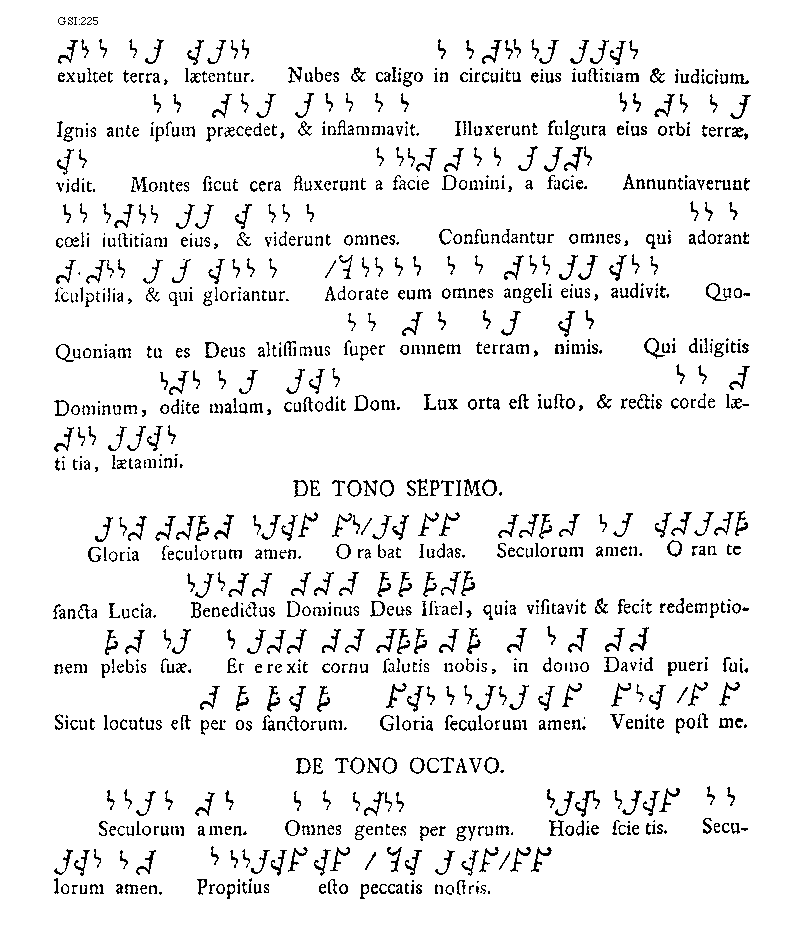 GSI:225
exultet terra, lætentur. Nubes & caligo in circuitu eius iuſtitiam & iudicium.
Ignis ante ipſum præcedet, & inflammavit. Illuxerunt fulgura eius orbi terræ,
vidit. Montes ſicut cera fluxerunt a facie Domini, a facie. Annuntiaverunt
cœli iuſtitiam eius, & viderunt omnes. Confundantur omnes, qui adorant
ſculptilia, & qui gloriantur. Adorate eum omnes angeli eius, audivit. Quo-
Quoniam tu es Deus altiſſimus ſuper omnem terram, nimis. Qui diligitis
Dominum, odite malum, cuſtodit Dom. Lux orta eſt iuſto, & rectis corde læ-
ti tia, lætamini.
DE TONO SEPTIMO.
Gloria ſeculorum amen. O ra bat Iudas. Seculorum amen. O ran te
ſancta Lucia. Benedictus Dominus Deus Iſrael, quia viſitavit & fecit redemptio-
nem plebis ſuæ. Et e r e xit cornu ſalutis nobis, in domo David pueri ſui.
Sicut locutus eſt per os ſanctorum. Gloria ſeculorum amen. Venite poſt me.
DE TONO OCTAVO.
Seculorum amen. Omnes gentes per gyrum. Hodie ſcie tis. Secu-
lorum amen. Propitius eſto peccatis noſtris.